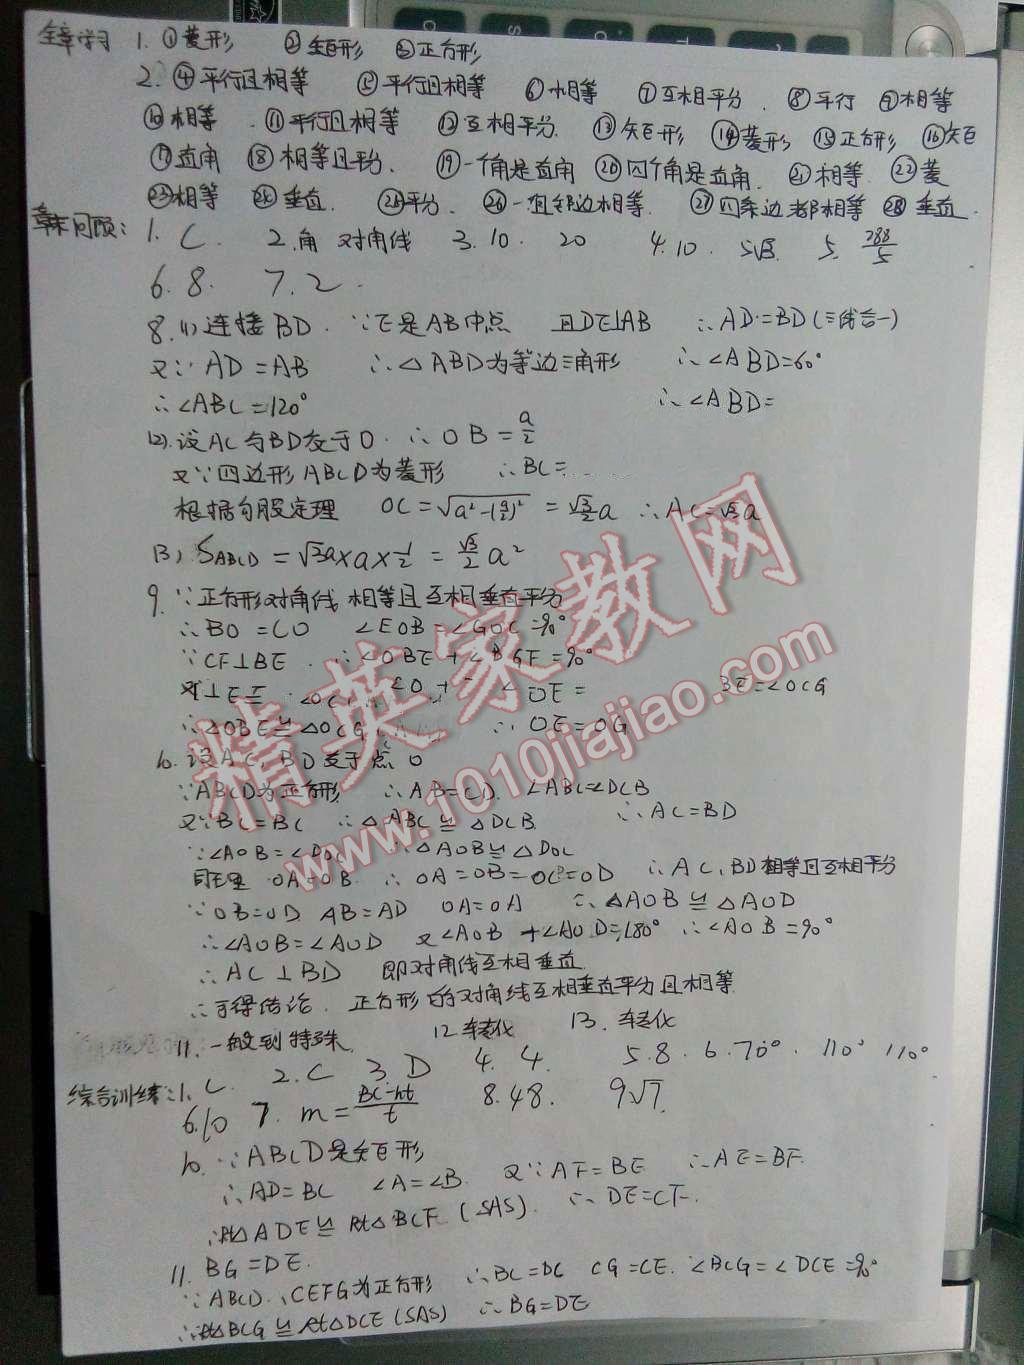 全章学习 1. ①菱形 ②矩形 ③正方形
2. ④平行且相等 ⑤平行且相等 ⑥相等 ⑦互相平分. ⑧平行 ⑨相等
⑩相等 ⑪平行且相等 ⑫互相平分. ⑬矩形 ⑭菱形 ⑮正方形 ⑯矩
⑰直角 ⑱相等且平分. ⑲一个角是直角 ⑳四个角是直角. ㉑相等 ㉒菱
㉓相等 ㉔垂直. ㉕平分. ㉖一组邻边相等. ㉗四条边都相等 ㉘垂直.
章末回顾: 1. C. 2. 角 对角线 3. 10. 20 4. 10. 5√3. 5. 288/5
6. 8. 7. 2.
8. (1) 连接BD. ∵E是AB中点 且DE⊥AB ∴AD=BD(三线合一)
又∵AD=AB ∴△ABD为等边三角形 ∴∠ABD=60°
∴∠ABC=120° ∴∠ABD=
(2). 设AC与BD交于O. ∴OB=a/2
又∵四边形ABCD为菱形 ∴BC=
根据勾股定理 OC=√(a²-(a/2)²)=√3/2 a ∴AC=√3a
(3) SABCD=√3a×a×1/2=√3/2 a²
9. ∵正方形对角线相等且互相垂直平分
∴BO=CO ∠EOB=∠GOC=90°
∵CF⊥BE. ∴∠OBE+∠BGF=90°
BE=∠OCG
∴△OBE≌△OCG ∴OE=OG
10. 设AC BD交于点O
∵ABCD为正方形 ∴AB=CD. ∠ABC=∠DCB
又∵BC=BC ∴△ABC≌△DCB. ∴AC=BD
∵∠AOB=∠DOC ∴△AOB≌△DOC
同理 OA=OB. ∴OA=OB=OC=OD ∴AC, BD相等且互相平分
∵OB=OD AB=AD OA=OA ∴△AOB≌△AOD
∴∠AOB=∠AOD 又∠AOB+∠AOD=180° ∴∠AOB=90°
∴AC⊥BD 即对角线互相垂直
∴可得结论. 正方形的对角线互相垂直平分且相等
11. 一般到特殊 12. 转化 13. 转化
综合训练: 1. C. 2. C 3. D 4. 4. 5. 8. 6. 70°. 110° 110°
6. 10 7. m=BC-nt/t 8. 48. 9√7.
10. ∵ABCD是矩形
∴AD=BC ∠A=∠B. 又∵AF=BE ∴AE=BF.
∴Rt△ADE≌Rt△BCF (SAS). ∴DE=CF.
11. BG=DE.
∵ABCD、CEFG为正方形 ∴BC=DC CG=CE. ∠BCG=∠DCE=90°
∴Rt△BCG≌Rt△DCE(SAS) ∴BG=DE
精英家教网
www.1010jiajiao.com